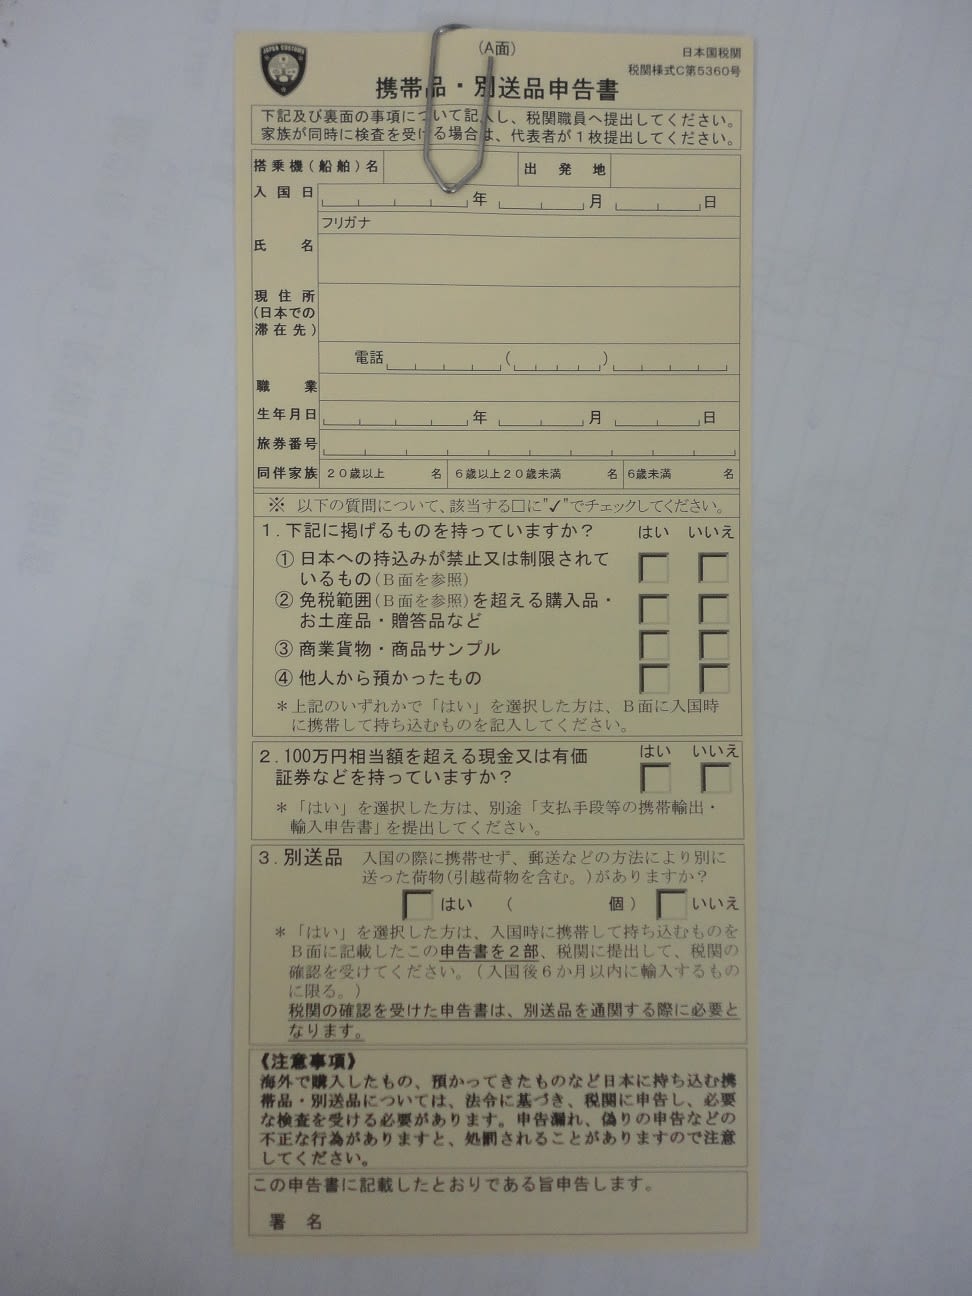 (A面)
日本国税関
税関様式C第5360号
JAPAN CUSTOMS
携帯品・別送品申告書
下記及び裏面の事項について記入し、税関職員へ提出してください。
家族が同時に検査を受ける場合は、代表者が1枚提出してください。
搭乗機(船舶)名 出発地
入国日 年 月 日
フリガナ
氏名
現住所
(日本での
滞在先)
電話 ( )
職業
生年月日 年 月 日
旅券番号
同伴家族 20歳以上 名 6歳以上20歳未満 名 6歳未満 名
※ 以下の質問について、該当する□に"✓"でチェックしてください。
1.下記に掲げるものを持っていますか? はい いいえ
① 日本への持込みが禁止又は制限されて
いるもの(B面を参照)
② 免税範囲(B面を参照)を超える購入品・
お土産品・贈答品など
③ 商業貨物・商品サンプル
④ 他人から預かったもの
*上記のいずれかで「はい」を選択した方は、B面に入国時
に携帯して持ち込むものを記入してください。
2.100万円相当額を超える現金又は有価 はい いいえ
証券などを持っていますか?
*「はい」を選択した方は、別途「支払手段等の携帯輸出・
輸入申告書」を提出してください。
3.別送品 入国の際に携帯せず、郵送などの方法により別に
送った荷物(引越荷物を含む。)がありますか?
はい ( 個) いいえ
*「はい」を選択した方は、入国時に携帯して持ち込むものを
B面に記載したこの申告書を2部、税関に提出して、税関の
確認を受けてください。(入国後6か月以内に輸入するもの
に限る。)
税関の確認を受けた申告書は、別送品を通関する際に必要と
なります。
《注意事項》
海外で購入したもの、預かってきたものなど日本に持ち込む携
帯品・別送品については、法令に基づき、税関に申告し、必要
な検査を受ける必要があります。申告漏れ、偽りの申告などの
不正な行為がありますと、処罰されることがありますので注意
してください。
この申告書に記載したとおりである旨申告します。
署名